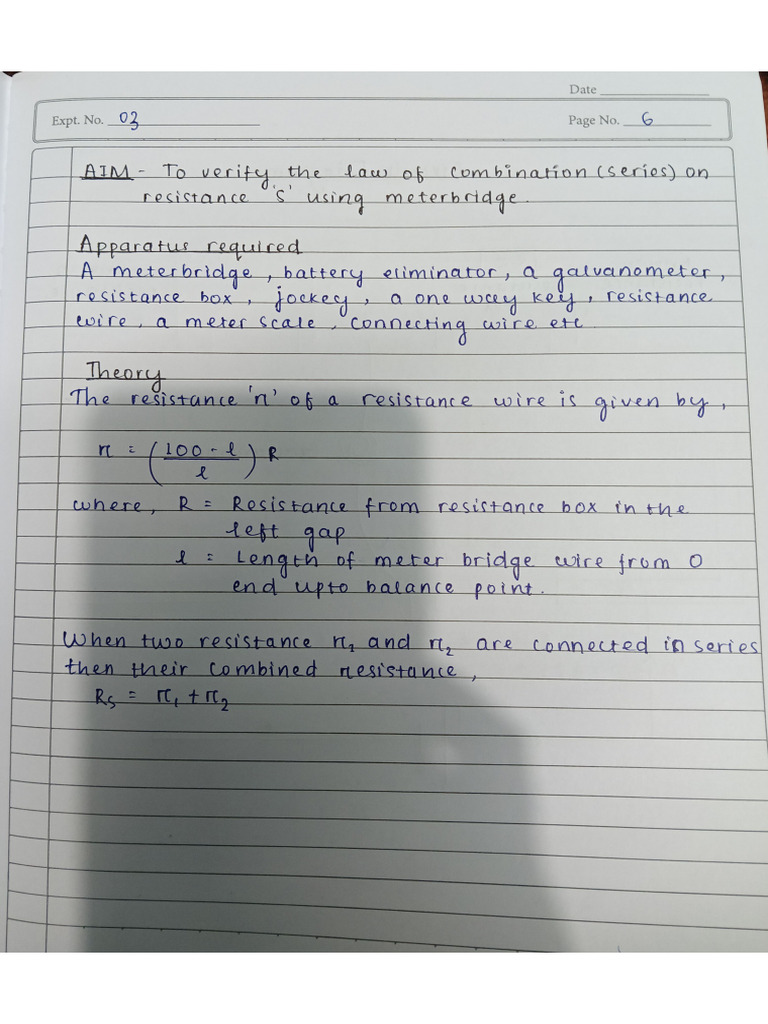 Date
Expt. No. 03
Page No. 6
AIM - To verify the law of combination (series) on
resistance 'S' using meterbridge.
Apparatus required
A meterbridge, battery eliminator, a galvanometer,
resistance box, jockey, a one way key, resistance
wire, a meter scale, connecting wire etc
Theory
The resistance 'r' of a resistance wire is given by,
r = (100 - l / l) R
where, R = Resistance from resistance box in the
left gap
l = Length of meter bridge wire from 0
end upto balance point.
When two resistance r₂ and r₂ are connected in series
then their combined resistance,
Rs = r₁ + r₂